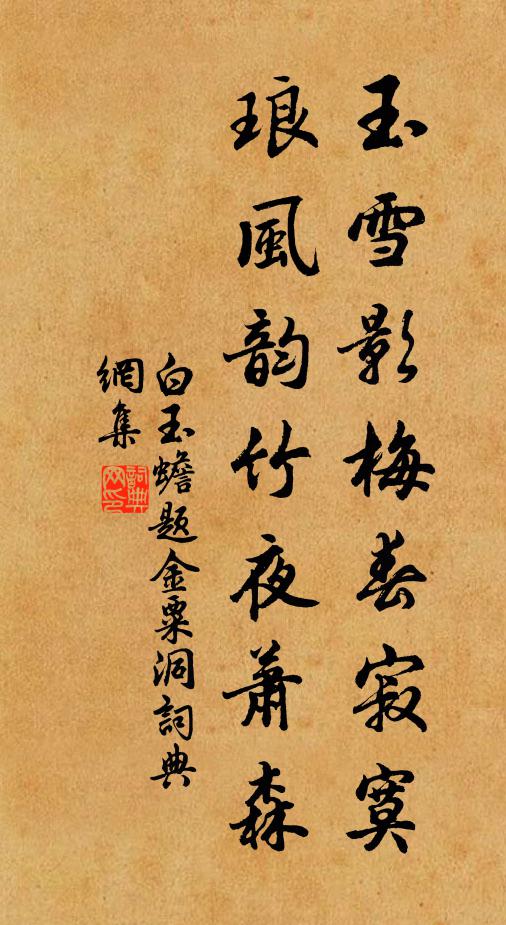 玉雪影梅春寂寞
琅風韵竹夜蕭森
白玉蟾题金粟洞詞典
網集
詞典
网印